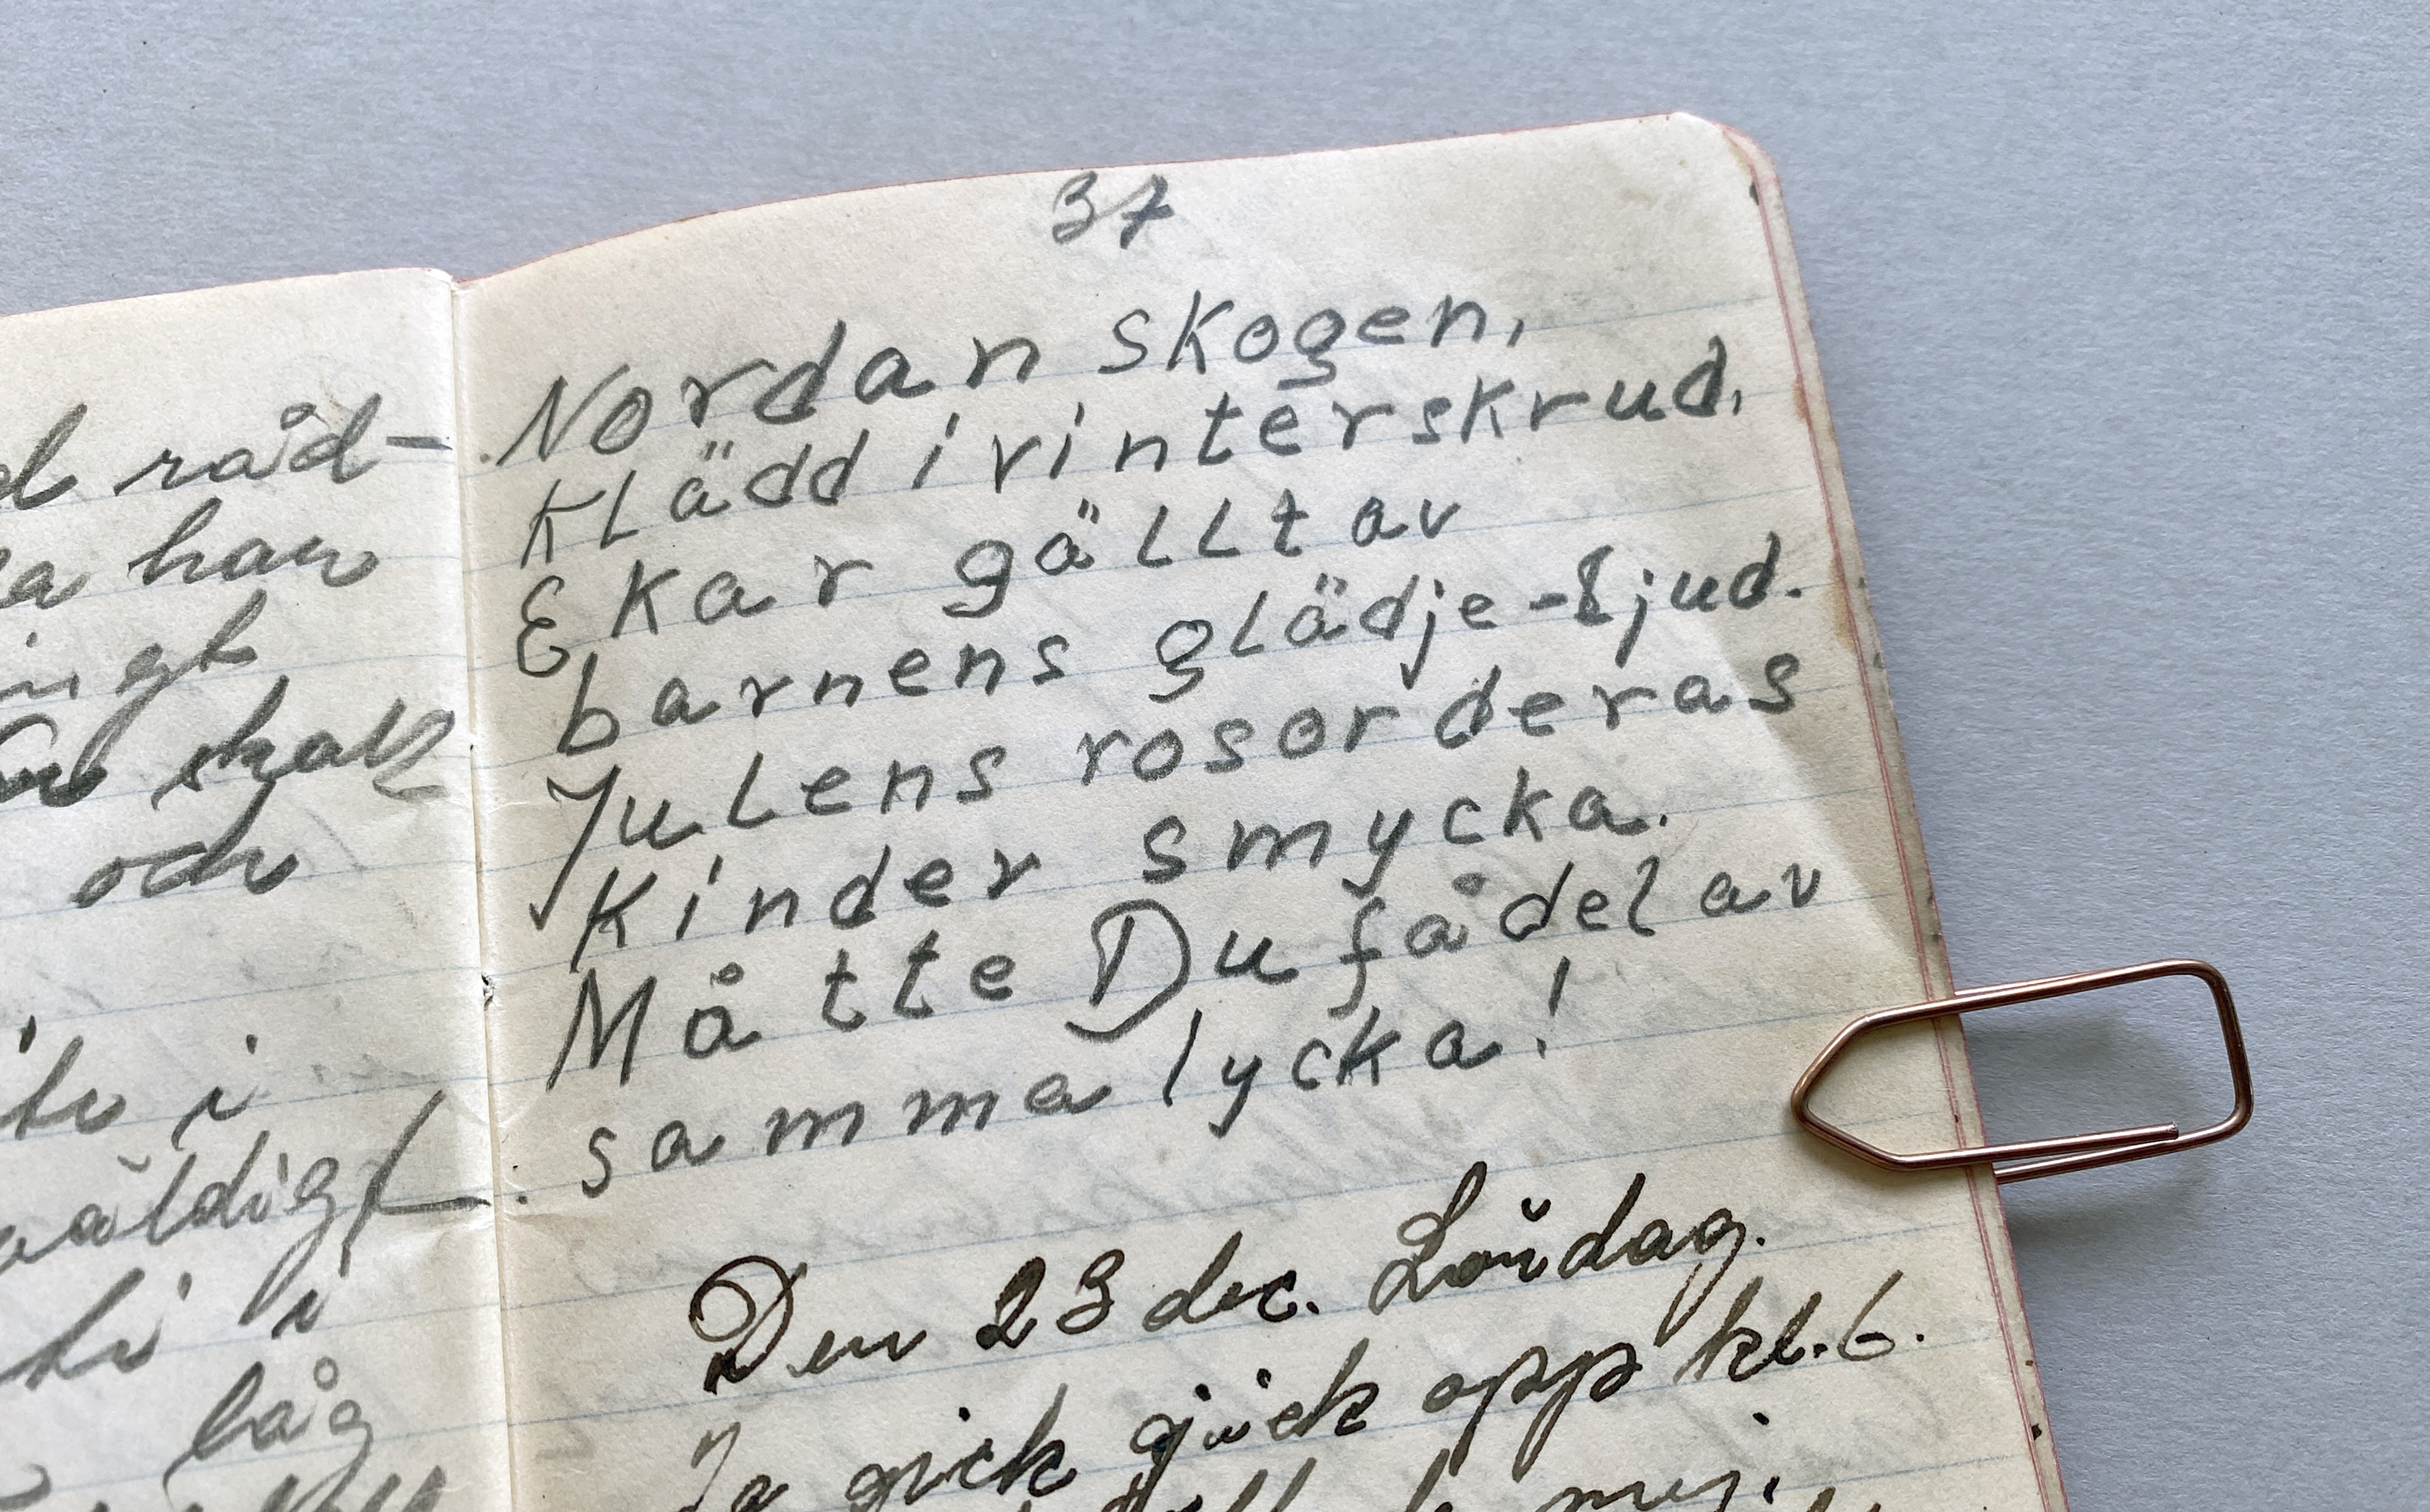 d råd-
a han
ingt
skall
och
i
väldigt
i
låg
37
Nordan skogen,
Klädd i vinterskrud,
Ekar gällt av
barnens glädje-ljud.
Julens rosor deras
Kinder smycka.
Måtte Du få del av
samma lycka!
Den 23 dec. Lördag.
Ja gick gick opp kl. 6.
mej.